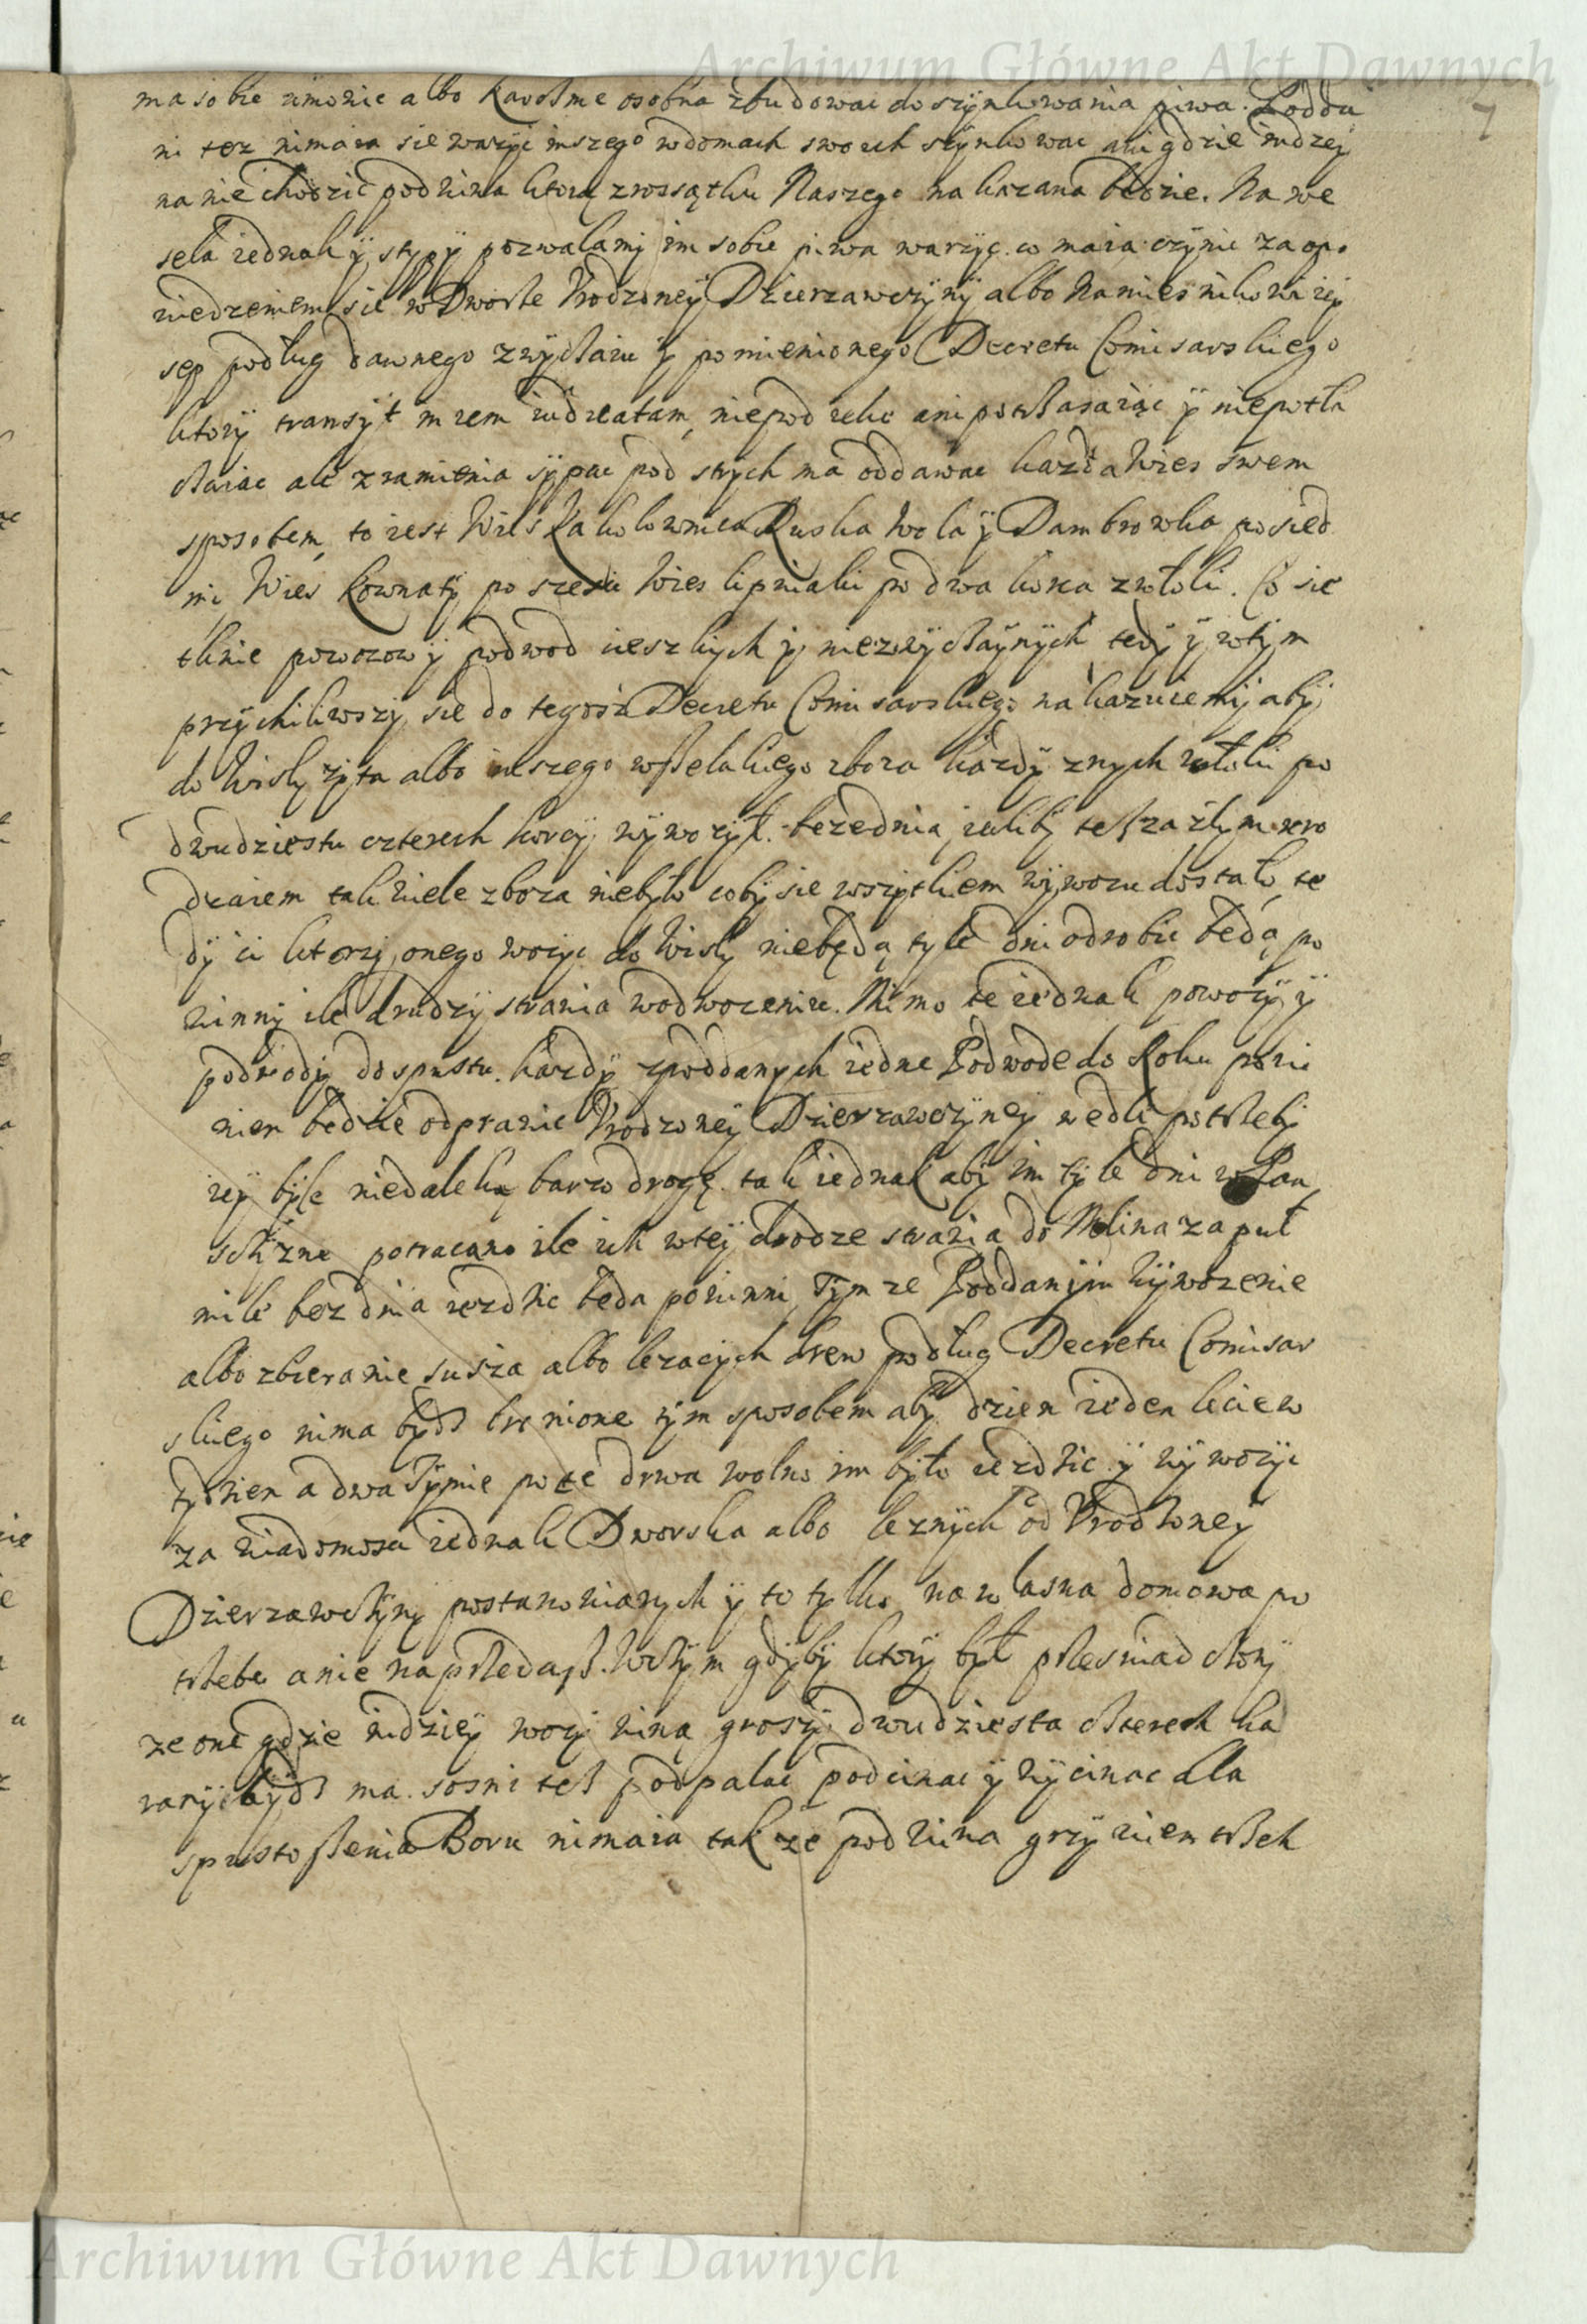 Archiwum Główne Akt Dawnych
7
ma sobie umowic albo karczme osobna zbudowac do szynkowania piwa. Podda
ni tez nimaia sie wazyc inszego w domach swoich szynkowac ani gdzie indzey
na nie chodzic pod wina ktora z rossątku Naszego nakazana bedzie. Na we
sela iednak y stypy pozwalamy im sobie piwa warzyc. co maia czynic za opo
wiedzeniem sie w Dworze Vrodzoney Dzierzawczyny albo Namiesnikowi iey
sep podług dawnego zwyczaiu y pomienionego Decretu Comisarskiego
ktory transyt in rem iudicatam, niepod reke ani potrzasaiąc y niepotla
czaiac ale z ramienia sypac pod strych ma oddawac kazda Wies swem
sposobem, to iest Wies Kakolownica Ruska Wola y Dambrowka po sied
mi, Wies Kownaty po szesci Wies Lipniaki po dwa korca z włoki. Co sie
tknie powozow y podwod cieszkych y niezwyczaynych tedy y w tym
przychiliwszy sie do tegosz Decretu Comisarskiego nakazuiemy aby
do Wisly zyta albo inszego wszelakiego zboza kazdy z nych z włoki po
dwudziestu czterech korcy wywozył. bezednia, ieliby tesz za złym uro
dzaiem tak wiele zboza niebyło coby sie wszytkiem wywozu dostało, te
dy ci ktorzy onego wozyc do Wisly niebędą tyle dni odrobic bedą po
winny ile drudzy strawia w odwozeniu. Mimo te iednak powozy y
podwody do spustu. kazdy z poddanych iedne Podwode do Roku powi
nien bedzie odprawic Vrodzoney Dzierzawczyney wedle potrzeby
iey byle niedaleką barzo drogę. tak iednak aby im tyle dni w Pan
sczyzne potracano ile ich w tey drodze strawia do Mlina za puł
mile bez dnia iezdzic beda powinni, Tym ze Poddanym wywozenie
albo zbieranie susza albo lezacych drew podług Decretu Comisar
skiego nima bydz bronione tym sposobem aby dzien ieden lecie w
tydzien a dwa zymie po te drwa wolno im było iezdzic y wywozyc
za wiadomoscia iednak Dworska albo lesnych od Vrodzoney
Dzierzawczyny postanowianych y to tylko na wlasna domowa po
trzebe a nie na przedasz. W czym gdyby ktory był przeswiadczony
ze one gdzie indziey wozy wina grosy dwudziesta czterech ka
rany bydz ma. sosni tesz podpalac podcinac y wycinac dla
spustoszenia Boru nimaia takze pod wina grzywien trzech
Archiwum Główne Akt Dawnych